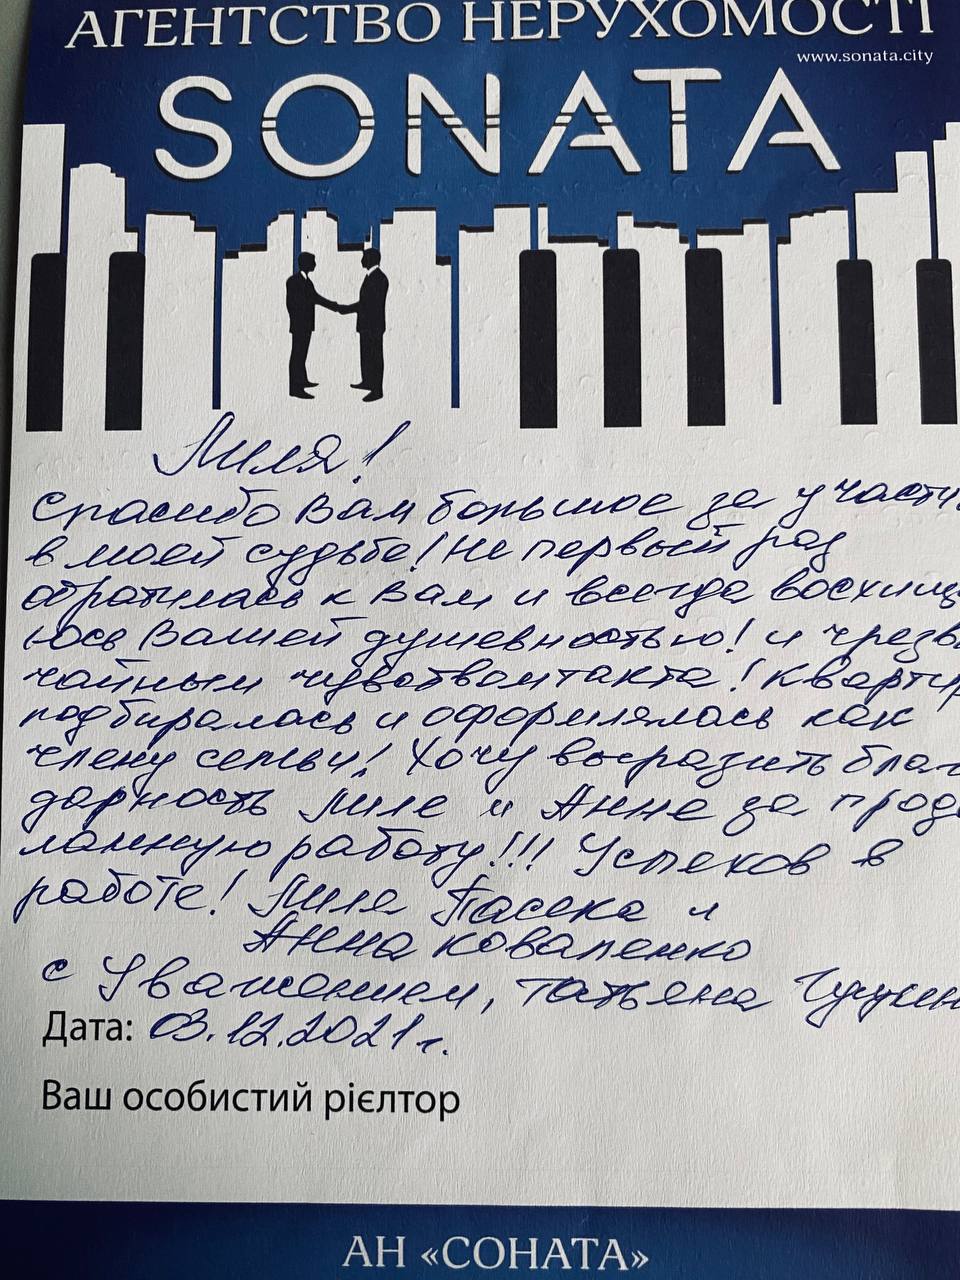 АГЕНТСТВО НЕРУХОМОСТІ
www.sonata.city
SONATA
Лиля!
Спасибо Вам большое за участи
в моей судьбе! Не первый раз
обратилась к Вам и всегда восхищ
юсь Вашей душевностью! и чрезвы
чайным чувством такта! Квартир
подбиралась и оформлялась как
члену семьи! Хочу выразить благо
дарность Лиле и Анне за прode
ланную работу!!! Успехов в
работе! Лиля Пасека и
Анна Коваленко
с Уважением, Татьяна
Дата: 03.12.2021 г.
Ваш особистий рієлтор
АН «СОНАТА»